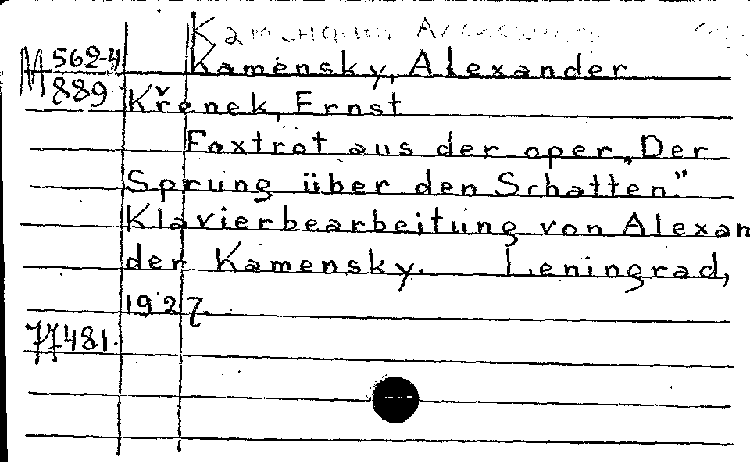 M 562-4
889
Kamensky, Alexander
Křenek, Ernst
Foxtrot aus der oper „Der
Sprung über den Schatten."
Klavierbearbeitung von Alexan
der Kamensky. Leningrad,
1927.
77481.